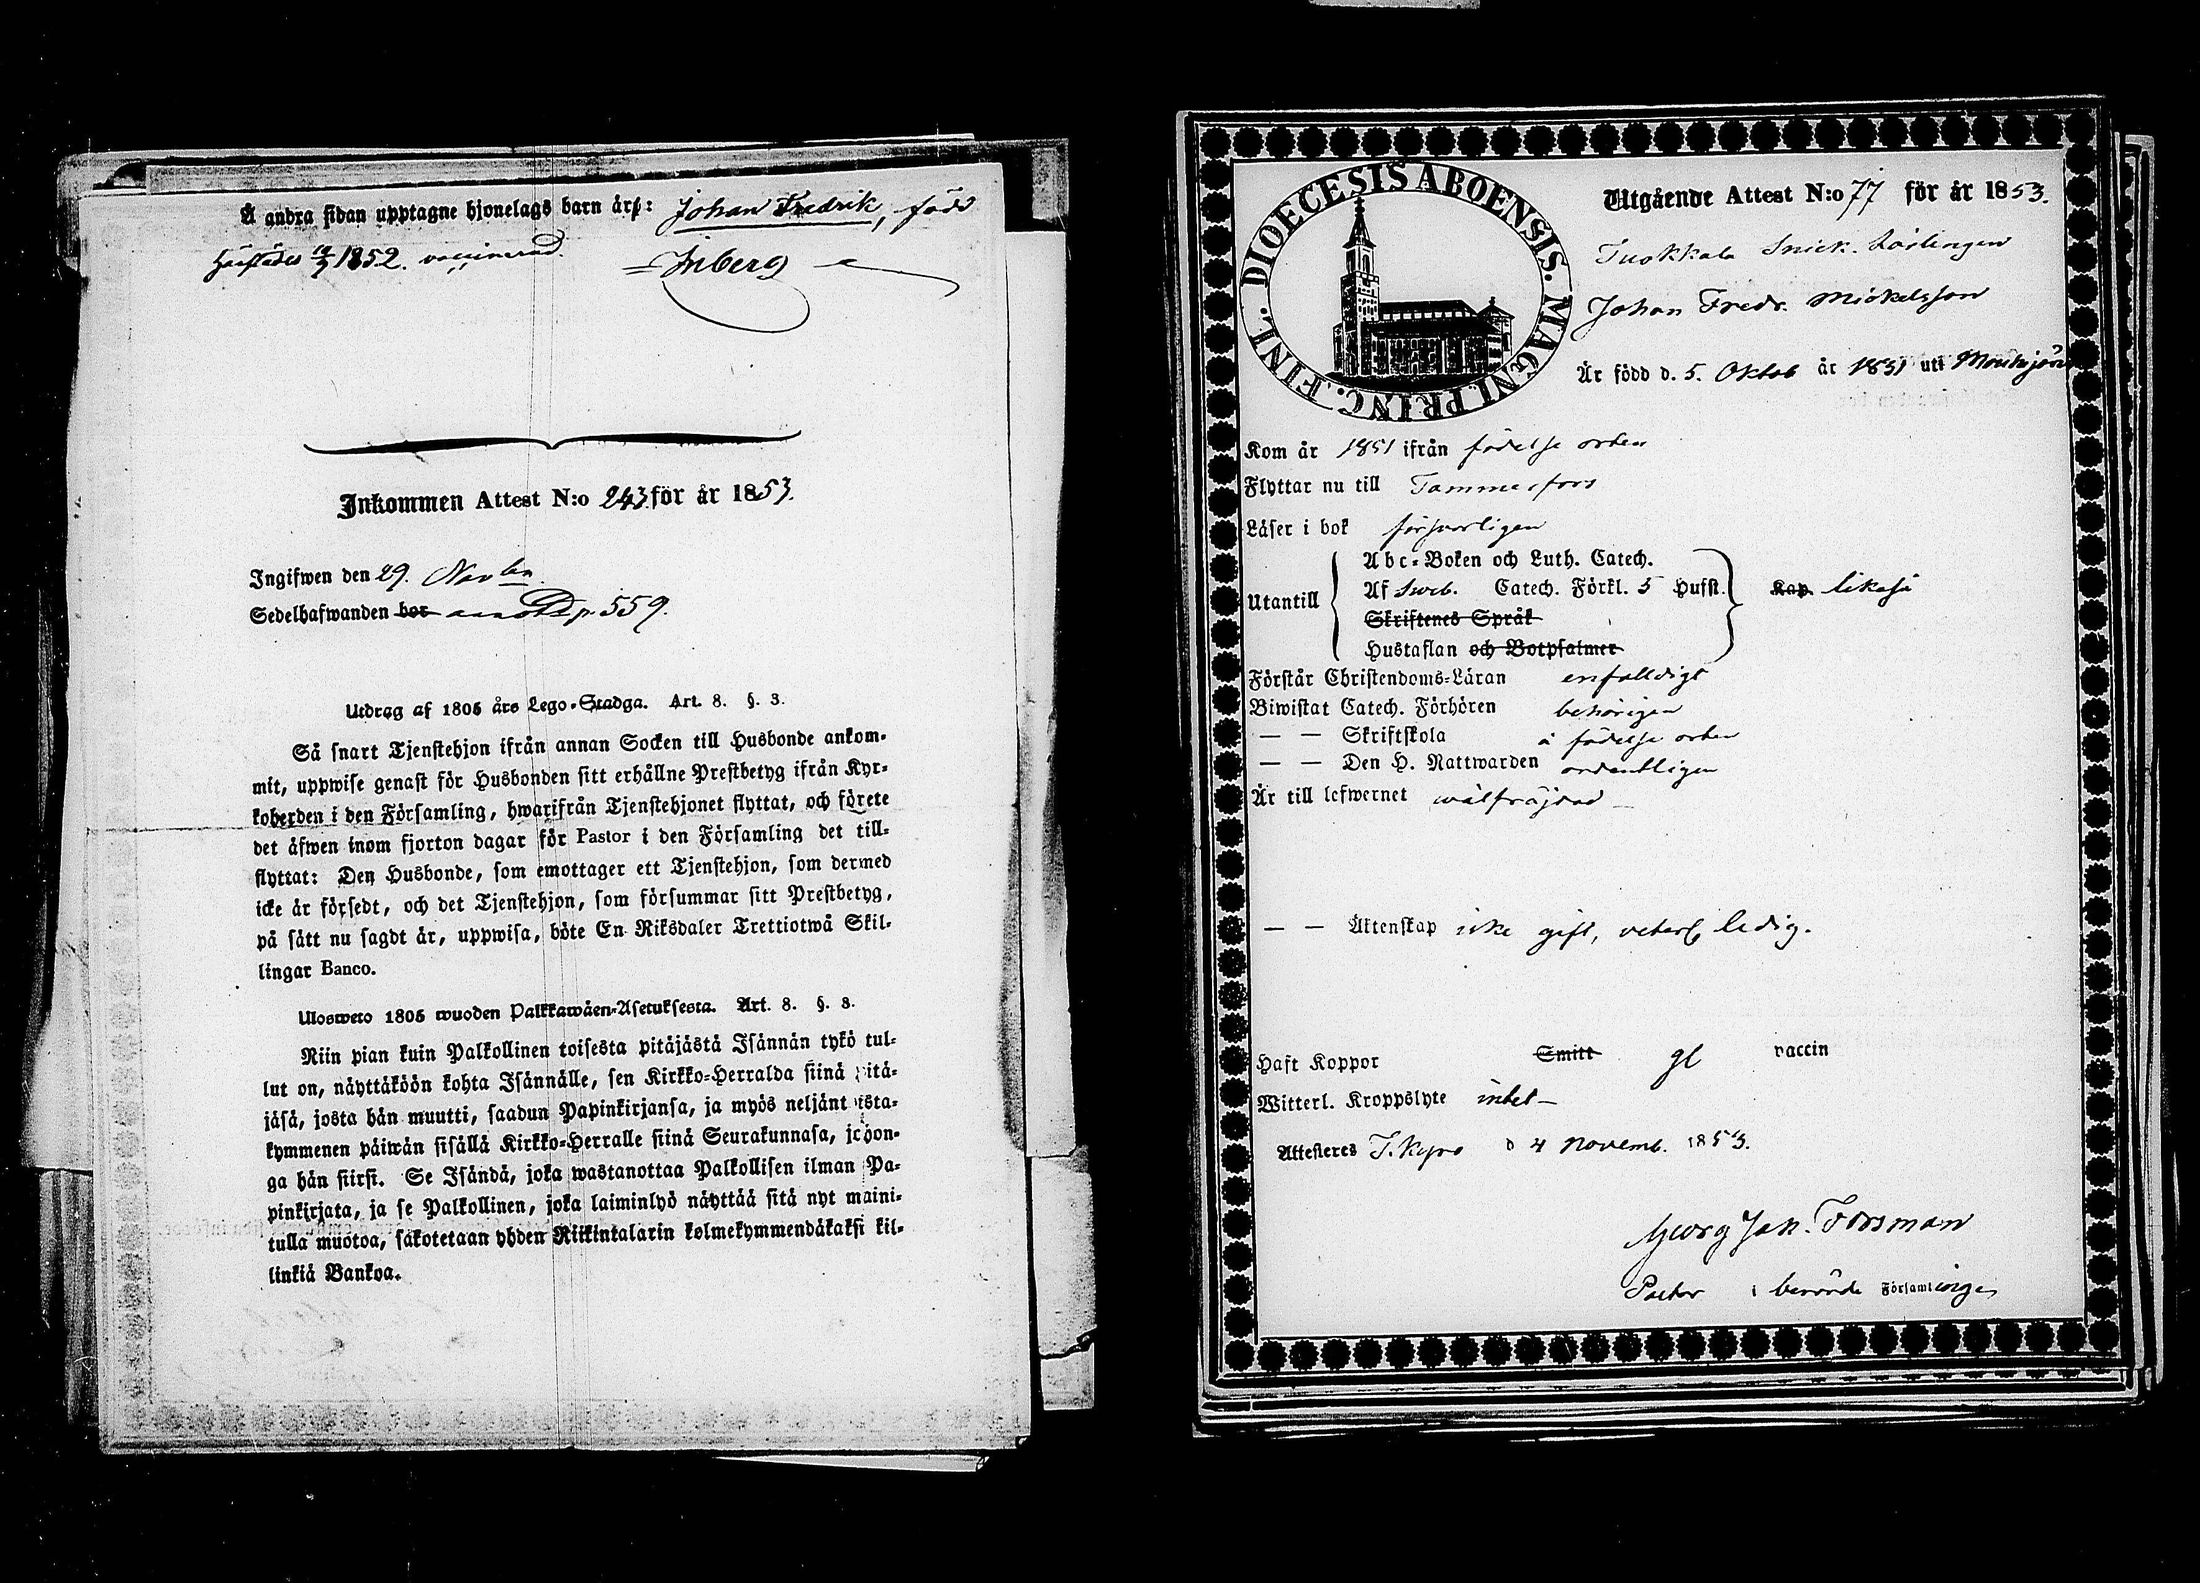 Å andra sidan upptagne hjonelags barn är: Johan Fredrik, född
härstädes 1852. vaccinerad. Inberg
Inkommen Attest N:o 243 för år 1853.
Ingifwen den 29. Novbr
Sedelhafwanden bor annot. p. 559.
Utdrag af 1805 års Lego-Stadga. Art. 8. §. 3.
Så snart Tjenstehjon ifrån annan Socken till Husbonde ankom-
mit, uppwise genast för Husbonden sitt erhållne Prestbetyg ifrån Kyr-
koherden i den Församling, hwarifrån Tjenstehjonet flyttat, och förete
det äfwen inom fjorton dagar för Pastor i den Församling det till-
flyttat: Den Husbonde, som emottager ett Tjenstehjon, som dermed
icke är försedt, och det Tjenstehjon, som försummar sitt Prestbetyg,
på sätt nu sagdt är, uppwisa, böte En Riksdaler Trettiotwå Skil-
lingar Banco.
Ulosweto 1805 wuoden Palkkawäen-Asetuksesta. Art. 8. §. 3.
Niin pian kuin Palkollinen toisesta pitäjästä Isännän tykö tul-
lut on, näyttäköön kohta Isännälle, sen Kirkko-Herralda siinä pitä-
jäsä, josta hän muutti, saadun Papinkirjansa, ja myös neljäntoista-
kymmenen päiwän sisällä Kirkko-Herralle siinä Seurakunnasa, johon-
ga hän siirsi. Se Isändä, joka wastanottaa Palkollisen ilman Pa-
pinkirjata, ja se Palkollinen, joka laiminlyö näyttää sitä nyt maini-
tulla muotoa, sakotetaan yhden Riikintalarin kolmekymmendäkaksi kil-
linkiä Bankoa.
DIOECESIS ABOENSIS. MAGNI PRINC. FINL.
Utgående Attest N:o 77 för år 1853.
Tuokkola Snick. Lärlingen
Johan Fredr. Mickelsson
Är född d. 5. Oktob år 1831 uti Mouhijärvi
Kom år 1851 ifrån födelse orten
Flyttar nu till Tammerfors
Läser i bok försvarligen
Abc-Boken och Luth. Catech.
Utantill Af Sweb. Catech. Förkl. 5 Hufst. Kap. likaså
Skriftenes Språk
Hustaflan och Botpsalmer
Förstår Christendoms-Läran enfalldigt
Biwistat Catech. Förhören behörigen
— — Skriftskola å födelse orten
— — Den H. Nattwarden ordentligen
Är till lefwernet wälfräjdad
— — Äktenskap icke gift, veterl. ledig.
Haft Koppor Smitt gl vaccin
Witterl. Kroppslyte intet
Attesteres T. Kyro d 4 Novemb. 1853.
Georg Jak. Forsman
Pastor i berörde Församlingen